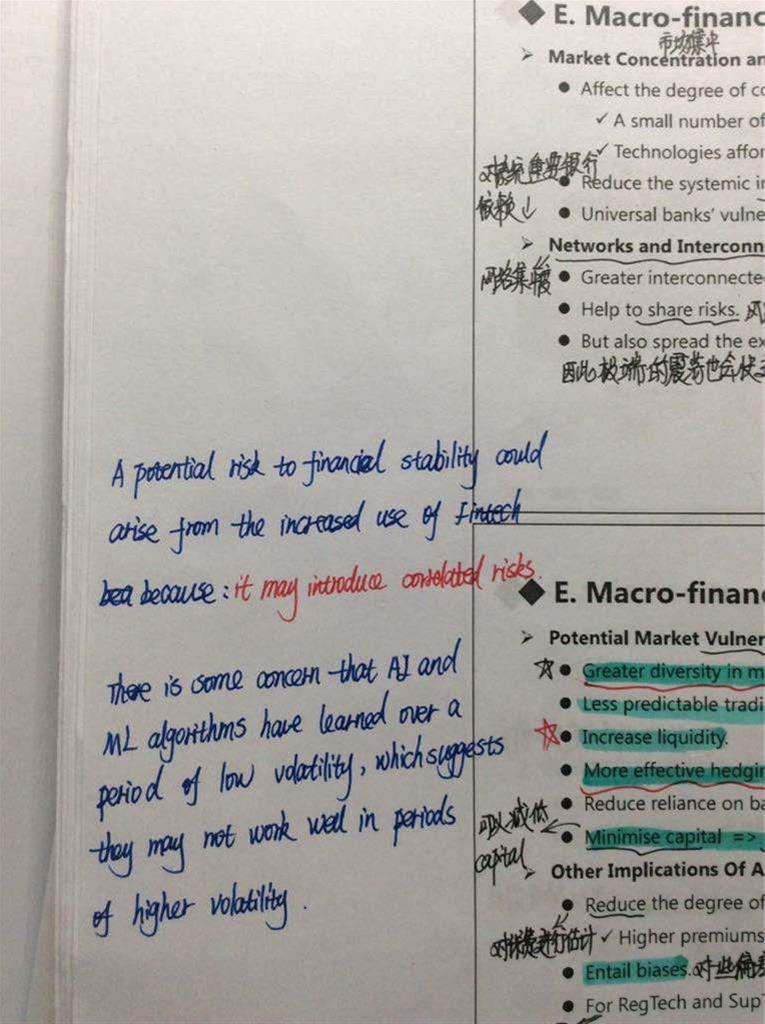 ◆ E. Macro-financ
市场集中
➢ Market Concentration an
● Affect the degree of co
✓ A small number of
✓ Technologies affor
对系统重要银行
● Reduce the systemic in
依赖↓
● Universal banks' vulne
➢ Networks and Interconn
网络集中度
● Greater interconnecte
● Help to share risks.
● But also spread the ex
因此极端的震荡也会
A potential risk to financial stability could
arise from the increased use of Fintech
bea because: it may introduce correlated risks.
◆ E. Macro-finan
➢ Potential Market Vulner
☆ ● Greater diversity in m
● Less predictable tradi
☆ ● Increase liquidity.
● More effective hedgin
● Reduce reliance on ba
可以减低
capital
● Minimise capital =>
There is some concern that AI and
ML algorithms have learned over a
period of low volatility, which suggests
they may not work well in periods
of higher volatility.
➢ Other Implications Of A
● Reduce the degree of
对保费进行估计
✓ Higher premiums
● Entail biases.
● For RegTech and SupT